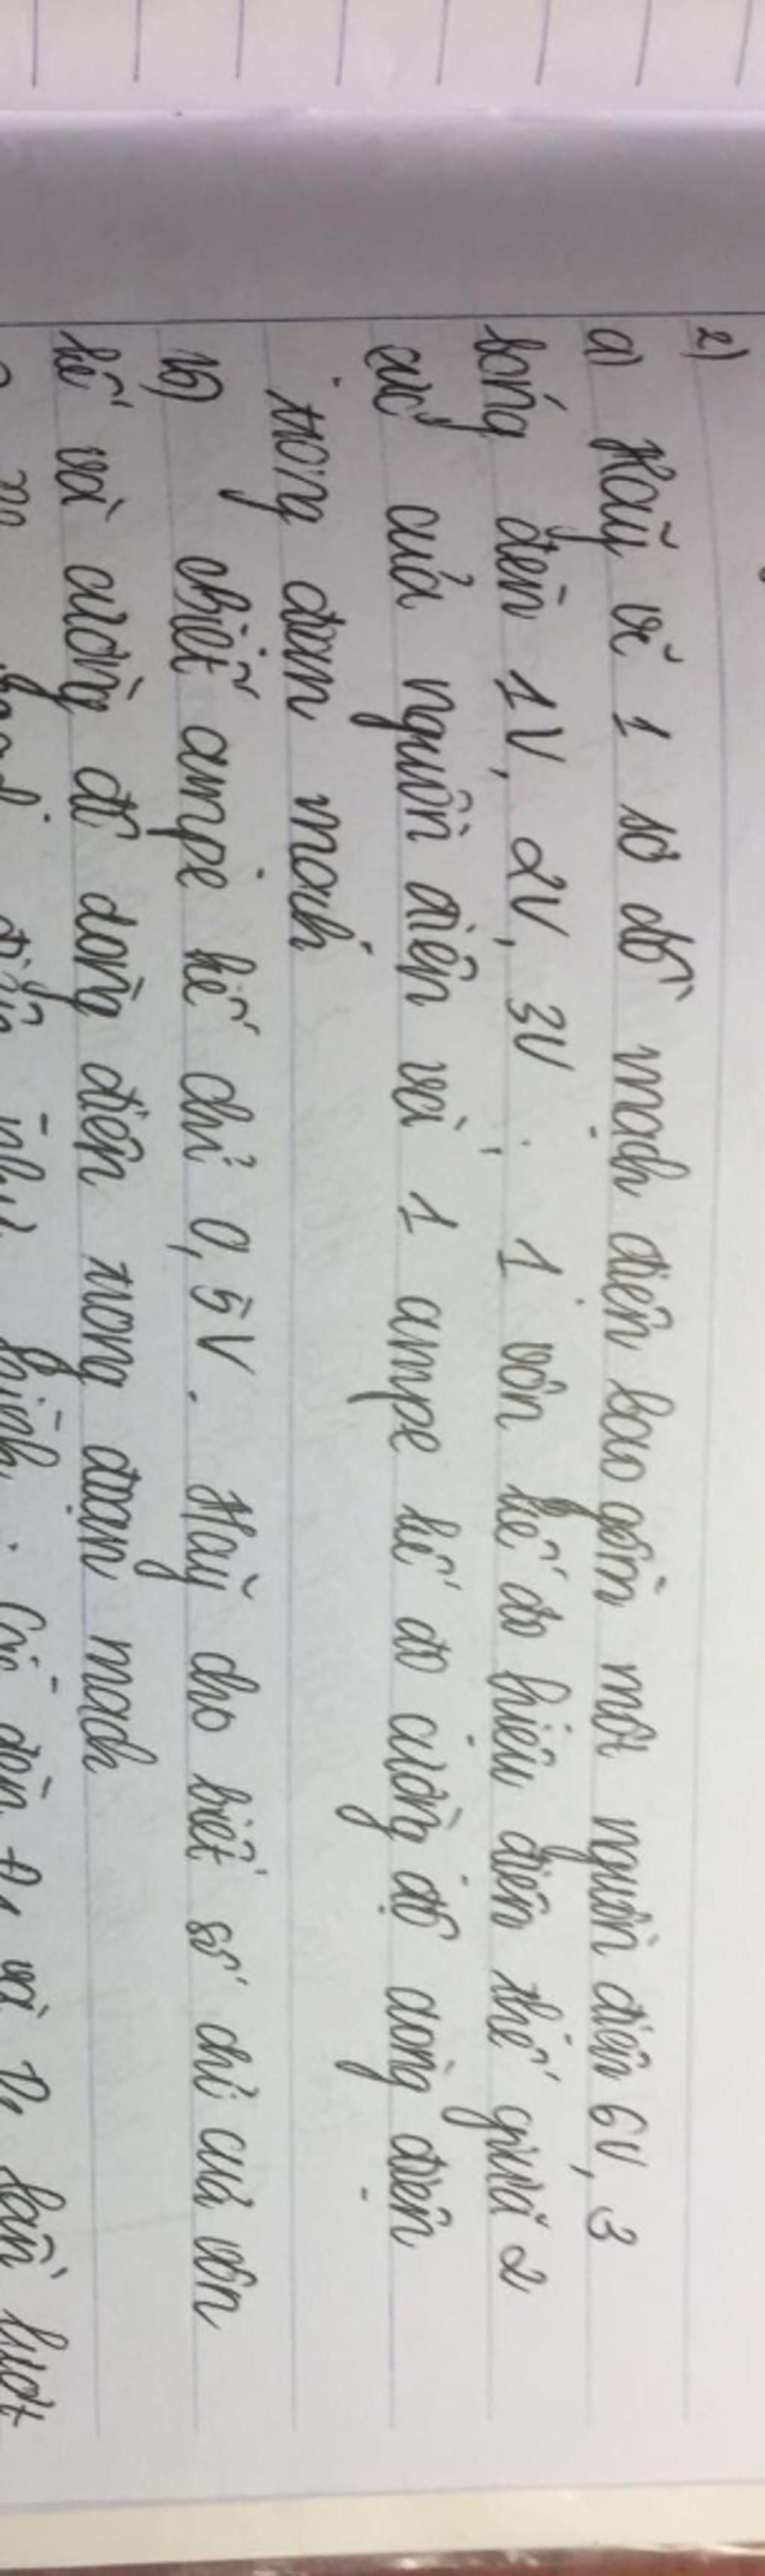 2)
a) Hãy vẽ 1 sơ đồ mạch điện bao gồm một nguồn điện 6V, 3
bóng đèn 1V, 2V, 3V, 1 vôn kế đo hiệu điện thế giữa 2
cực của nguồn điện và 1 ampe kế đo cường độ dòng điện
trong đoạn mạch
b) biết ampe kế chỉ 0,5V. Hãy cho biết số chỉ của vôn
kế và cường độ dòng điện trong đoạn mạch
đèn Đ1 và Đ2 lần lượt